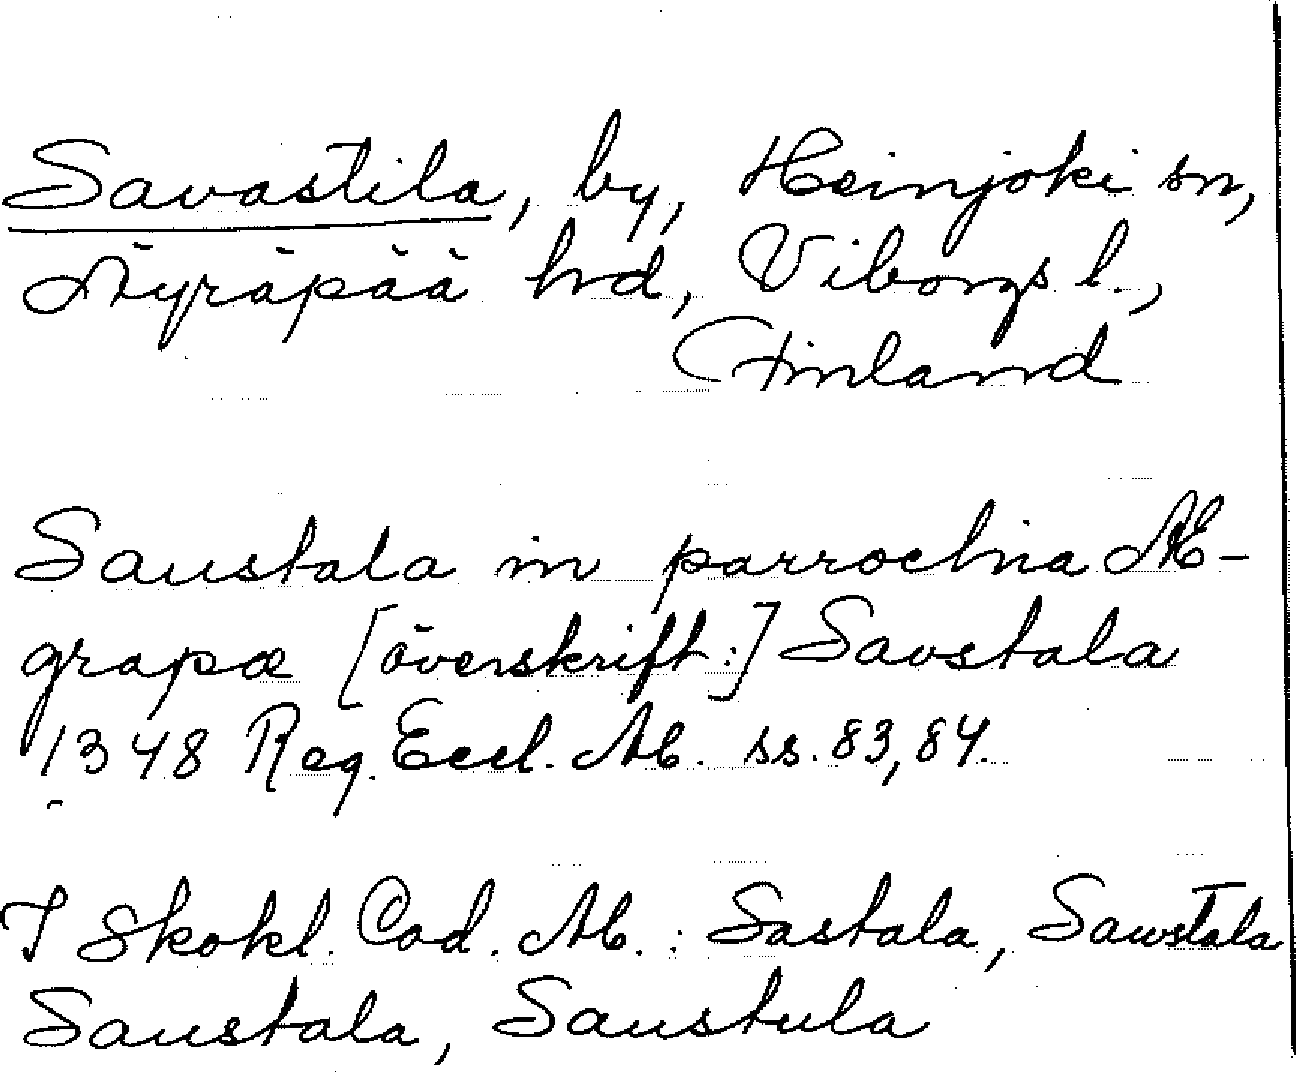 Savastila, by, Heinjoki sn,
Äyräpää hd, Viborgs l.,
Finland
Saustala in parrochia Æ-
grapæ [överskrift:] Savstala
1348 Reg. Eccl. Ab. ss. 83, 84.
I Skokl. Cod. Ab.: Sastala, Sawstala
Saustala, Saustula